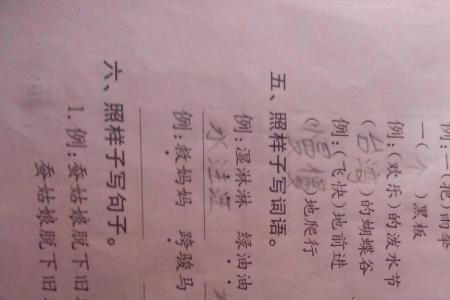 例:一(把)雨伞
一(个)黑板
例:(欢乐)的泼水节
(台湾)的蝴蝶谷
例:(飞快)地前进
(慢慢)地爬行
五、照样子写词语。
例:湿淋淋 绿油油
水汪汪
例:教妈妈 跨骏马
六、照样子写句子。
1.例:蚕姑娘脱下旧
蚕姑娘脱下旧